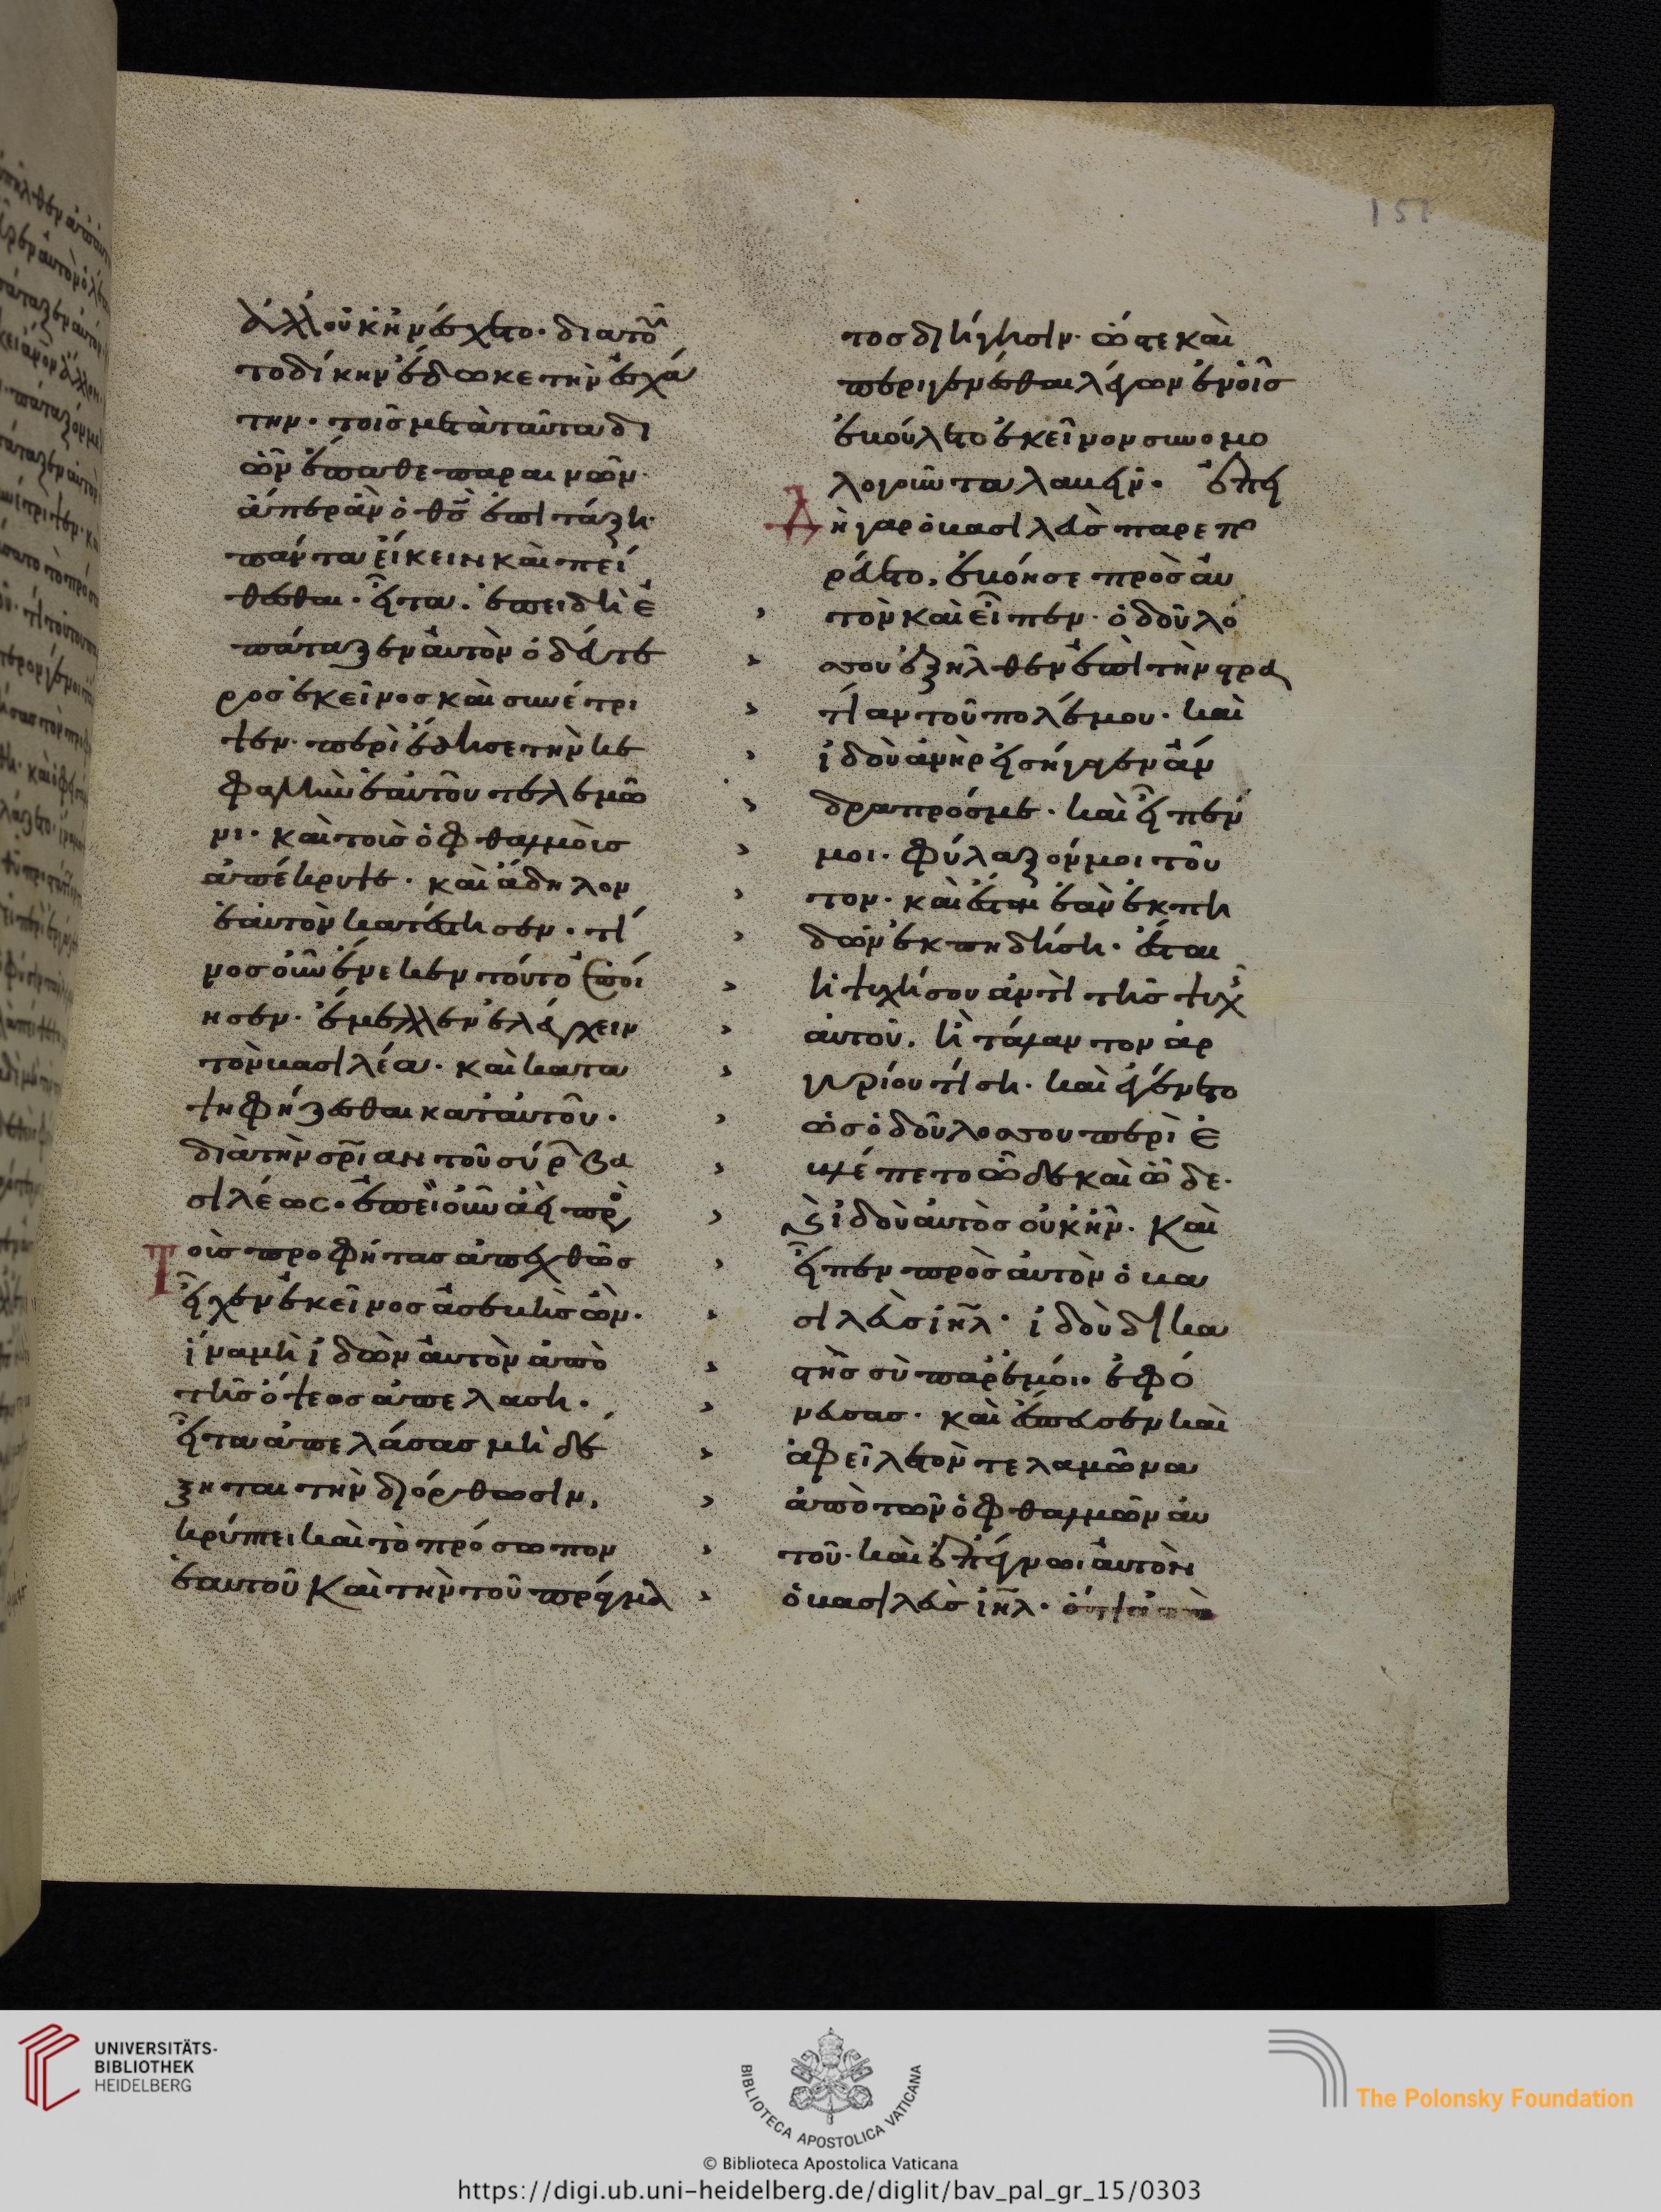 151
ἀλλ' οὐκ ἠνέσχετο· διὰ τοῦ
το δίκην ἔδωκε τὴν ἐσχά
την· τοῖς μετὰ ταῦτα δι'
ὧν ἔπαθε παραινῶν·
ἅπερ ἂν ὁ θ̅ς̅ ἐπιτάξη
πάντα εἴκειν καὶ πεί
θεσθαι· εἶτα ἐπειδὴ ἐ
πάταξεν αὐτὸν ὁ δεύτε
ρος ἐκεῖνος καὶ συνέτρι
ψεν· περιέδησε τὴν κε
φαλὴν ἑαυτοῦ τελεμῶ
νι· καὶ τοῖς ὀφθαλμοῖς
ἀπέκρυψε· καὶ ἄδηλον
ἑαυτὸν κατέστησεν· τί
νος οὖν ἕνεκεν τοῦτο ἐποί
ησεν· ἔμελλεν ἐλέγχειν
τὸν βασιλέα· καὶ κατα
ψηφίζεσθαι κατ' αὐτοῦ·
διὰ τὴν σ̅ρ̅ίαν τοῦ σύρ βα
σιλέως· ἐπεὶ οὖν ἀεὶ πρὸ
τοὺς προφήτας ἀπεχθῶς
εἶχεν ἐκεῖνος ἀσεβὴς ὤν·
ἵνα μὴ ἰδὼν αὐτὸν ἀπὸ
τῆς ὄψεως ἀπελάση·
εἶτα ἀπελάσας μὴ δέ
ξηται τὴν διόρθωσιν,
κρύπτει καὶ τὸ πρόσωπον
ἑαυτοῦ καὶ τὴν τοῦ πράγμα
τος διήγησιν· ὥστε καὶ
περιγενέσθαι λέγων ἐν οἷς
ἐβούλετο ἐκεῖνον συνομο
λογοῦντα λαβεῖν· ἐπει
Δὴ γὰρ ὁ βασιλεὺς παρεπο
ρεύετο, ἐβόησε πρὸς αὐ
τὸν καὶ εἶπεν· ὁ δοῦλό
σου ἐξῆλθεν ἐπὶ τὴν στρα
τίαν τοῦ πολέμου· καὶ
ἰδοὺ ἀνὴρ εἰσήγαγεν ἄν
δρα πρός με· καὶ εἶπέν
μοι· φύλαξόν μοι τοῦ
τον· καὶ ἔσται ἐὰν ἐκπη
δῶν ἐκπηδήση· ἔσται
ἡ ψυχή σου ἀντὶ τῆς ψυχῆ
αὐτοῦ. ἢ τάλαντον ἀρ
γυρίου τίση· καὶ ἐγένετο
ὡς ὁ δοῦλός σου περιε
βλέπετο ὧδε καὶ ὧδε·
ϗ ἰδοὺ αὐτὸς οὐκ ἦν. Καὶ
εἶπεν πρὸς αὐτὸν ὁ βα
σιλεὺς ἰ̅η̅λ̅· ἰδοὺ δικα
στὴς σὺ παρ' ἐμοὶ ἐφό
νευσας· καὶ ἔσπευσεν καὶ
ἀφεῖλε τὸν τελαμῶνα
ἀπὸ τῶν ὀφθαλμῶν αὐ
τοῦ· καὶ ἐπέγνω αὐτὸν
ὁ βασιλεὺς ἰ̅η̅λ̅·
UNIVERSITÄTS-
BIBLIOTHEK
HEIDELBERG
BIBLIOTECA APOSTOLICA VATICANA
The Polonsky Foundation
© Biblioteca Apostolica Vaticana
https://digi.ub.uni-heidelberg.de/diglit/bav_pal_gr_15/0303